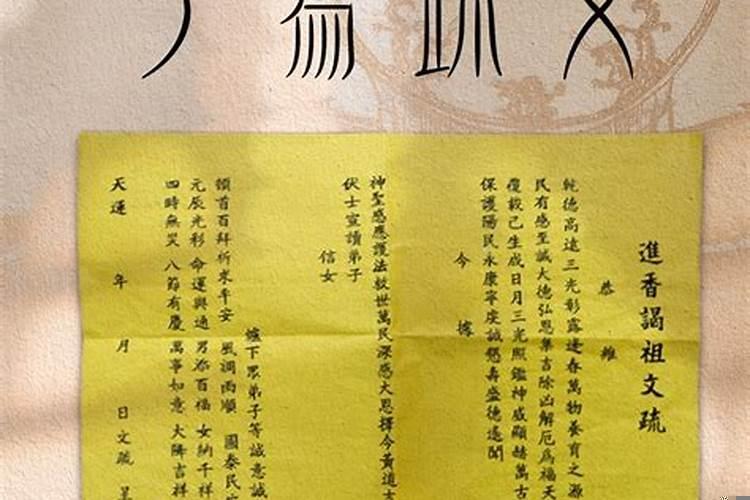 疏文
進香謁祖文疏
恭 維
乾德高遠三光彰露逢春萬物養育之源
民有感至誠大德弘恩集吉除凶解厄為福天
覆載己生成日月三光照鑑神威顯赫萬古
保護陽民永康寧虔誠懇壽盛德遙聞
今 據
神聖感應護法救世萬民深感大恩擇今黃道
伏士宣讀弟子
信女
爐下眾弟子等誠意誠
頓首百拜祈求平安 風調雨順 國泰民
元辰光彩 命運興通 男添百福 女納千祥
四時無災 八節有慶 萬事如意 大降吉祥
天運 年 月 日文疏 呈